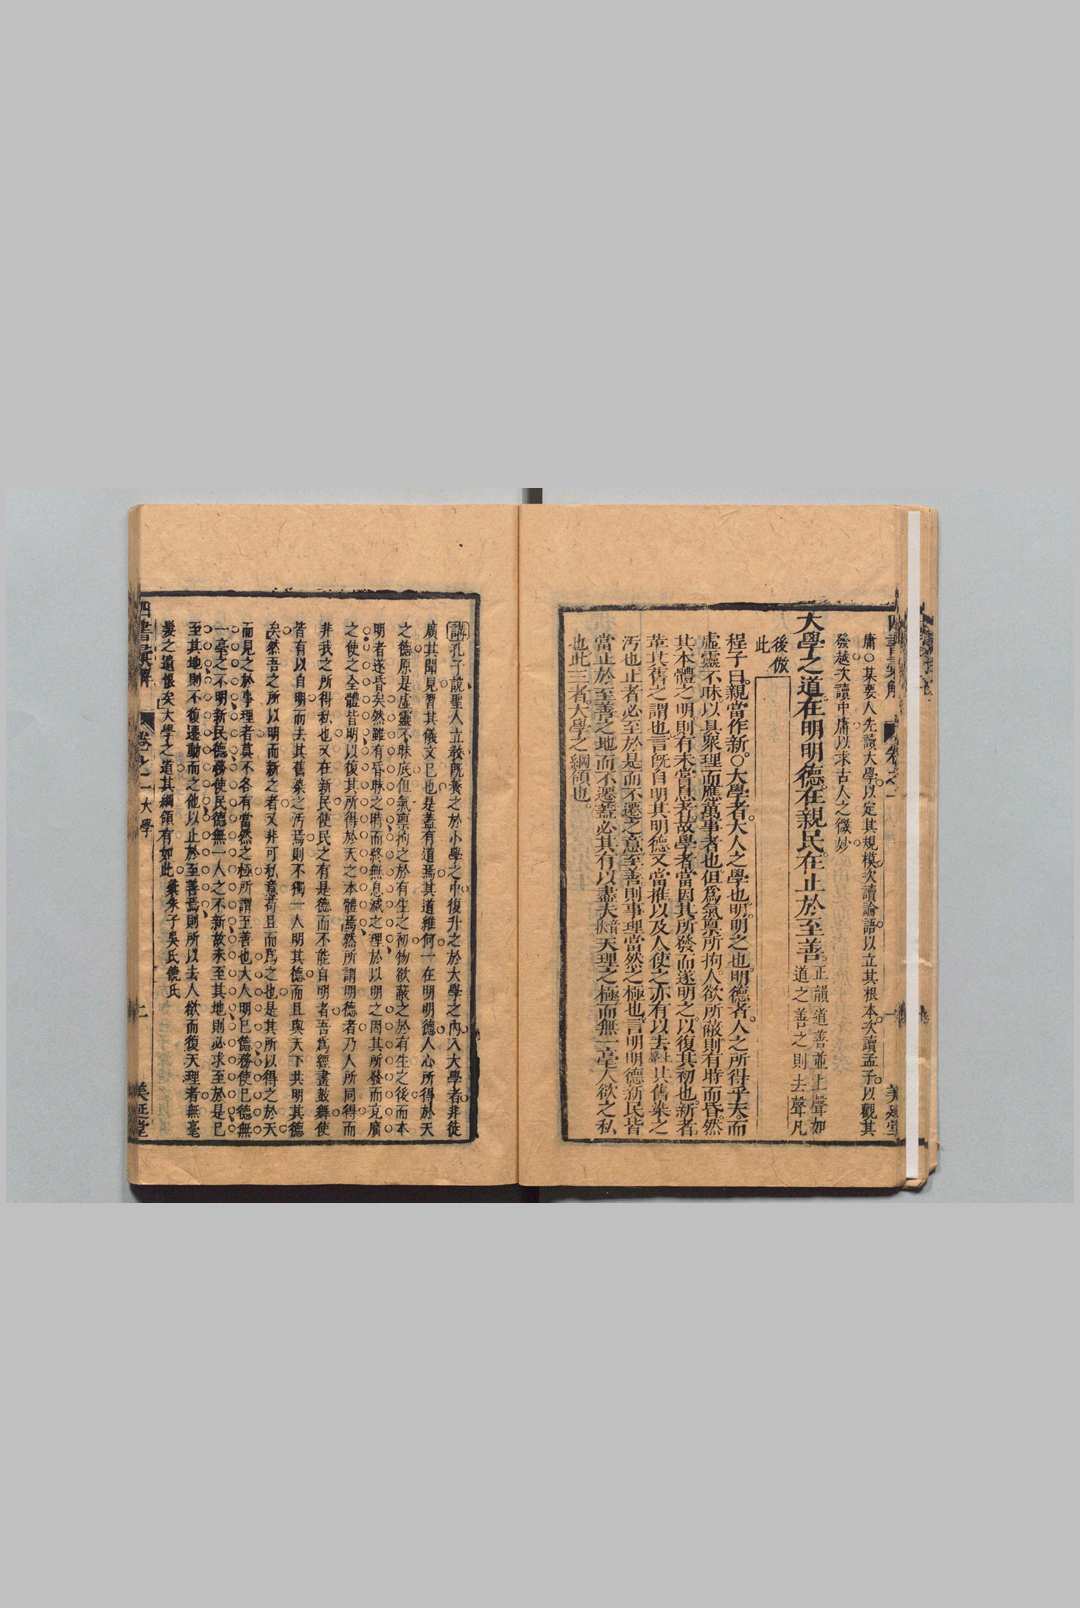 庸○某要人先讀大學以定其規模次讀論語以立其根本次讀孟子以觀其
發越次讀中庸以求古人之微妙
大學之道在明明德在親民在止於至善
正韻道善並上聲如
道之善之則去聲凡
後倣
此
程子曰親當作新○大學者大人之學也明明之也明德者人之所得乎天而
虛靈不昧以具衆理而應萬事者也但爲氣稟所拘人欲所蔽則有時而昏然
其本體之明則有未嘗息者故學者當因其所發而遂明之以復其初也新者
革其舊之謂也言旣自明其明德又當推以及人使之亦有以去其舊染之
汚也止者必至於是而不遷之意至善則事理當然之極也言明明德新民皆
當止於至善之地而不遷蓋必其有以盡夫天理之極而無一毫人欲之私
也此三者大學之綱領也
孔子說聖人立敎旣養之於小學之中復升之於大學之內入大學者非徒
廣其聞見習其儀文已也是蓋有道焉其道維何一在明明德人心所得於天
之德原是虛靈不昧底但氣稟拘之於有生之初物欲蔽之於有生之後而本
明者遂昏矣然雖有昏昧之時而終無息滅之理於以明之因其所發而充廣
之使之全體皆明以復其所得於天之本體焉然所謂明德者乃人所同得而
非我之所得私也又在新民使民之有是德而不能自明者吾爲經畫鼓舞使
皆有以自明而去其舊染之汚焉則不獨一人明其德而且與天下共明其德
矣然吾之所以明而新之者又非可私意苟且而爲之也是其所以得之於天
而見之於事理者莫不各有當然之極所謂至善也大人明己德務使己德無
一毫之不明新民德務使民德無一人之不新故未至其地則必求至於是已
至其地則不復遷動而之他以止於至善焉則所以去人欲而復天理者無毫
髮之遺恨矣大學之道其綱領有如此 朱子吳氏饒氏
四書 解 卷之一 大學 二 美延堂